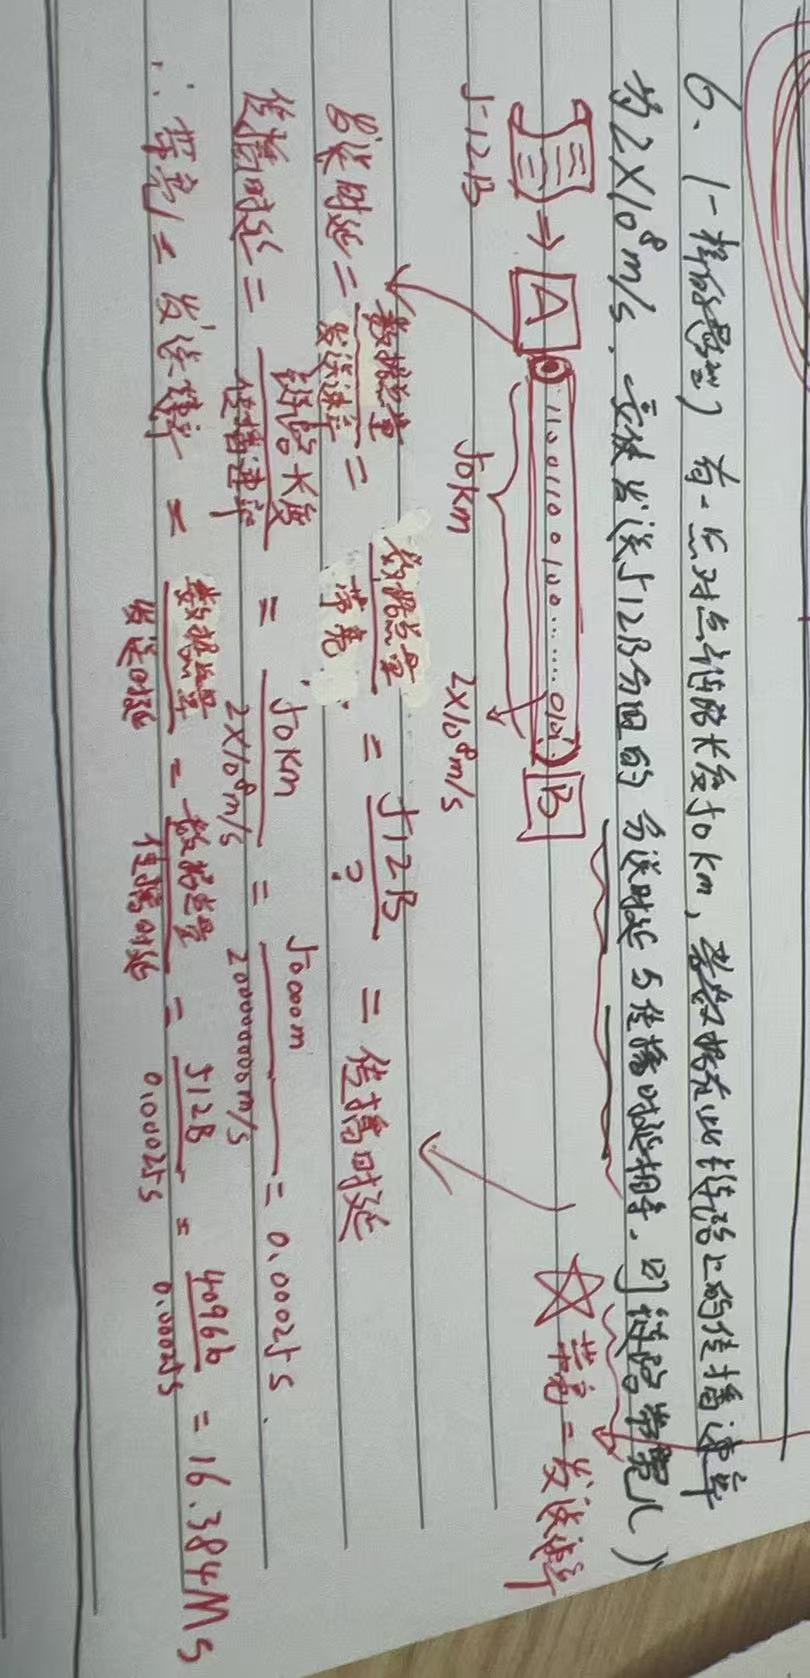 6、(一样的题型) 有一点对点链路长度50km,若数据在此链路上的传播速率
为2×10⁸m/s,要使发送512B分组的发送时延与传播时延相等,则链路带宽( )
512B
A
11001100100......010
B
50km
2×10⁸m/s
☆ 带宽=发送速率
发送时延=数据总量/发送速率=数据总量/带宽=512B/?=传播时延
传播时延=链路长度/传播速率=50km/2×10⁸m/s=50000m/200000000m/s=0.00025s.
∴带宽=发送速率=数据总量/发送时延=数据总量/传播时延=512B/0.00025s=4096b/0.00025s=16.384Ms